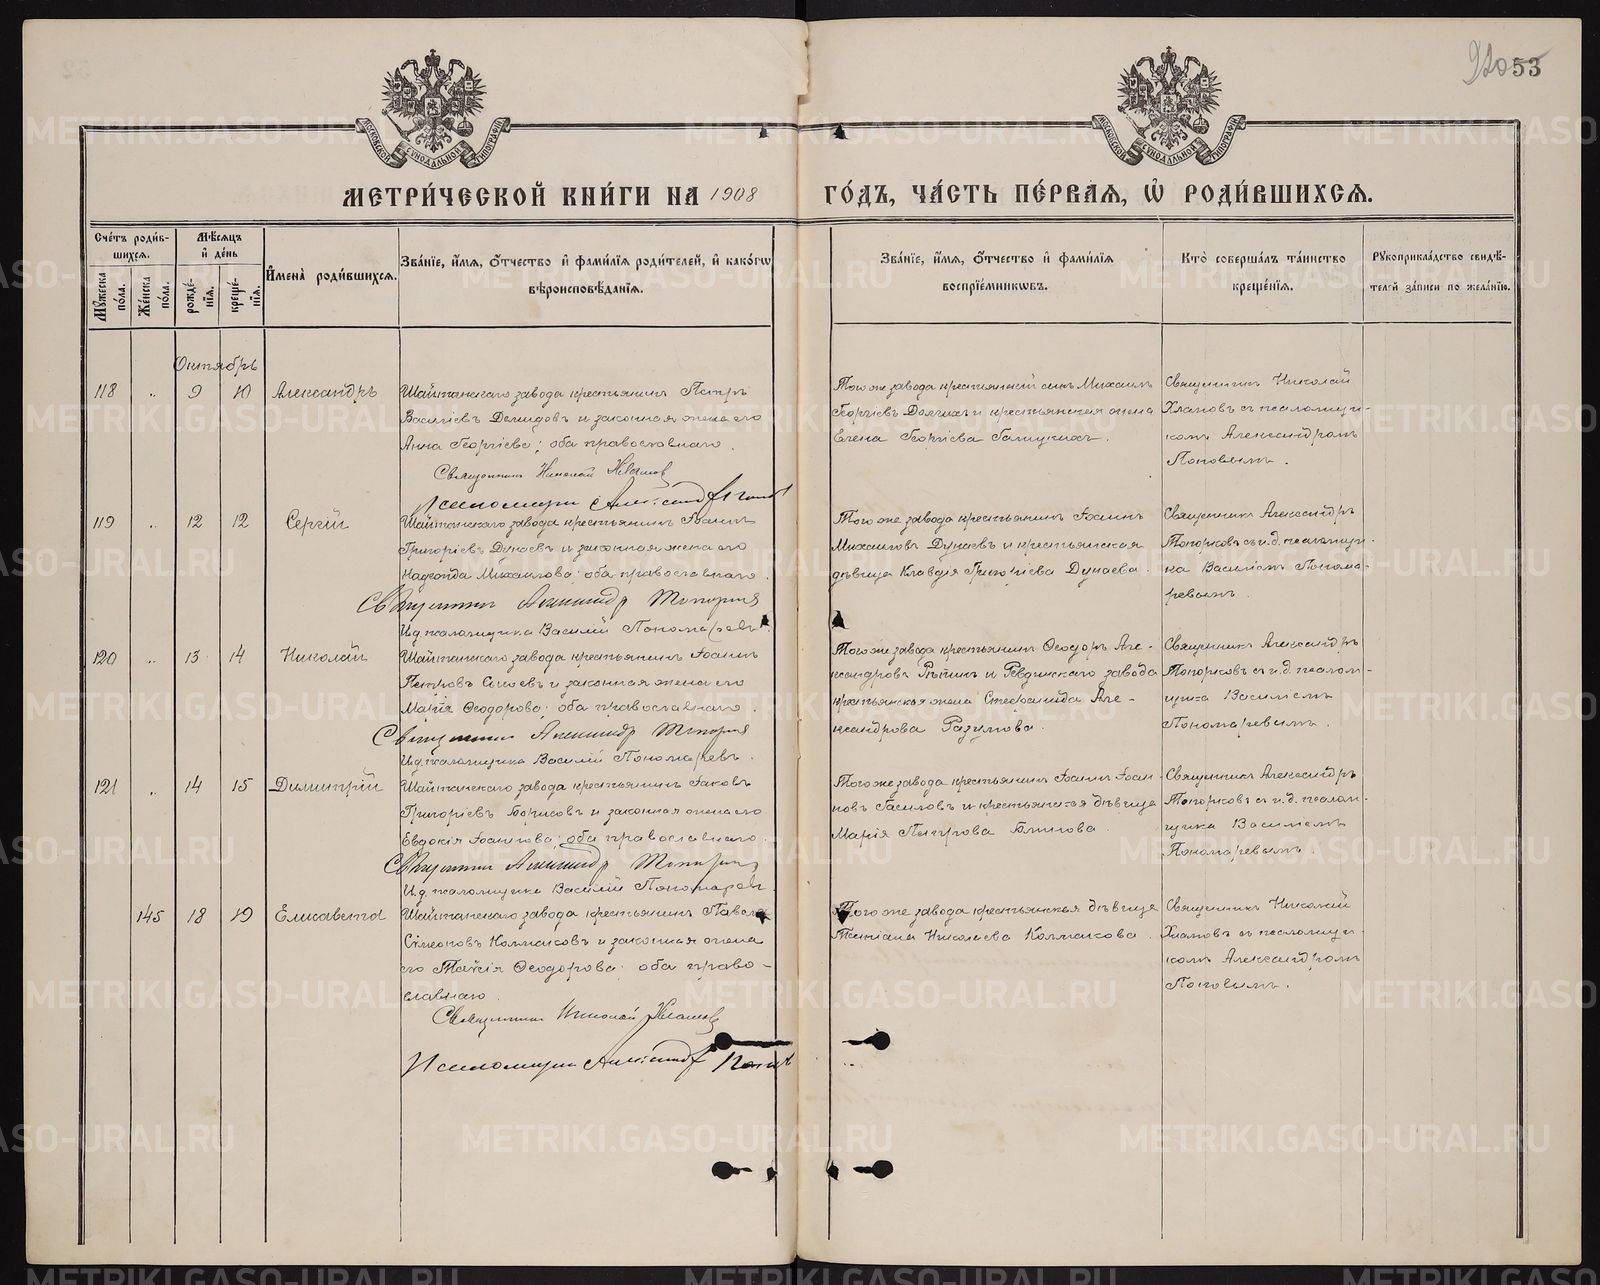 53
МОСКОВСКОЙ СѴНОДАЛЬНОЙ ТИПОГРАФІИ
МОСКОВСКОЙ СѴНОДАЛЬНОЙ ТИПОГРАФІИ
МЕТРИ́ЧЕСКОЙ КНИ́ГИ НА 1908 ГО́ДЪ, ЧА́СТЬ ПЕ́РВАѦ, Ѡ҆ РОДИ́ВШИХСѦ.
Сче́тъ роди́в-
шихсѧ.
Мꙋ́жеска по́ла.
Же́нска по́ла.
Мѣ́сѧцъ и҆ де́нь
рожде́-
нїѧ.
креще́-
нїѧ.
И҆мена̀ роди́вшихсѧ.
Зва́нїе, и҆́мѧ, ѻ҆́тчество и҆ фами́лїѧ роди́телей, и҆ како́гѡ
вѣроисповѣ́данїѧ.
Зва́нїе, и҆́мѧ, ѻ҆́тчество и҆ фами́лїѧ
воспрїе́мникѡвъ.
Кто̀ соверша́лъ та́инство
креще́нїѧ.
Рꙋкоприкла́дство свидѣ́-
телей за́писи по жела́нїю.
Октябрь
118 „ 9 10 Александръ
Шайтанскаго завода крестьянинъ Петръ
Василіевъ Демидовъ и законная жена его
Анна Георгіева; оба православнаго.
Священникъ Николай Хлановъ
Псаломщикъ Александръ Поповъ
Того же завода крестьянскій сынъ Михаилъ
Георгіевъ Долгихъ и крестьянская жена
Елена Георгіева Галицкихъ.
Священникъ Николай
Хлановъ съ псаломщи-
комъ Александромъ
Поповымъ.
119 „ 12 12 Сергій
Шайтанскаго завода крестьянинъ Іоаннъ
Григоріевъ Дунаевъ и законная жена его
Надежда Михаилова; оба православнаго.
Священникъ Александръ Топорковъ
И.д. псаломщика Василій Пономаревъ.
Того же завода крестьянинъ Іоаннъ
Михаиловъ Дунаевъ и крестьянская
дѣвица Клавдія Григоріева Дунаева.
Священникъ Александръ
Топорковъ съ и.д. псаломщи-
ка Василіемъ Понома-
ревымъ.
120 „ 13 14 Николай
Шайтанскаго завода крестьянинъ Іоаннъ
Петровъ и законная жена его
Марія Ѳеодорова; оба православнаго.
Священникъ Александръ Топорковъ
И.д. псаломщика Василій Пономаревъ.
Того же завода крестьянинъ Ѳеодоръ Але-
ксандровъ и Ревдинскаго завода
крестьянская жена Стефанида Але-
ксандрова Разумова.
Священникъ Александръ
Топорковъ съ и.д. псалом-
щика Василіемъ
Пономаревымъ.
121 „ 14 15 Димитрій
Шайтанскаго завода крестьянинъ Іаковъ
Григоріевъ Борисовъ и законная жена его
Евдокія Іоаннова; оба православнаго.
Священникъ Александръ Топорковъ
И.д. псаломщика Василій Пономаревъ.
Того же завода крестьянинъ Іоаннъ Іоан-
новъ Гасиловъ и крестьянская дѣвица
Марія Петрова Блинова.
Священникъ Александръ
Топорковъ съ и.д. псалом-
щика Василіемъ
Пономаревымъ.
145 18 19 Елисавета
Шайтанскаго завода крестьянинъ Павелъ
Сѵмеоновъ Колмаковъ и законная жена
его Таисія Ѳеодорова; оба право-
славнаго.
Священникъ Николай Хлановъ
Псаломщикъ Александръ Поповъ
Того же завода крестьянская дѣвица
Татіана Николаева Колмакова.
Священникъ Николай
Хлановъ съ псаломщи-
комъ Александромъ
Поповымъ.
METRIKI.GASO-URAL.RU